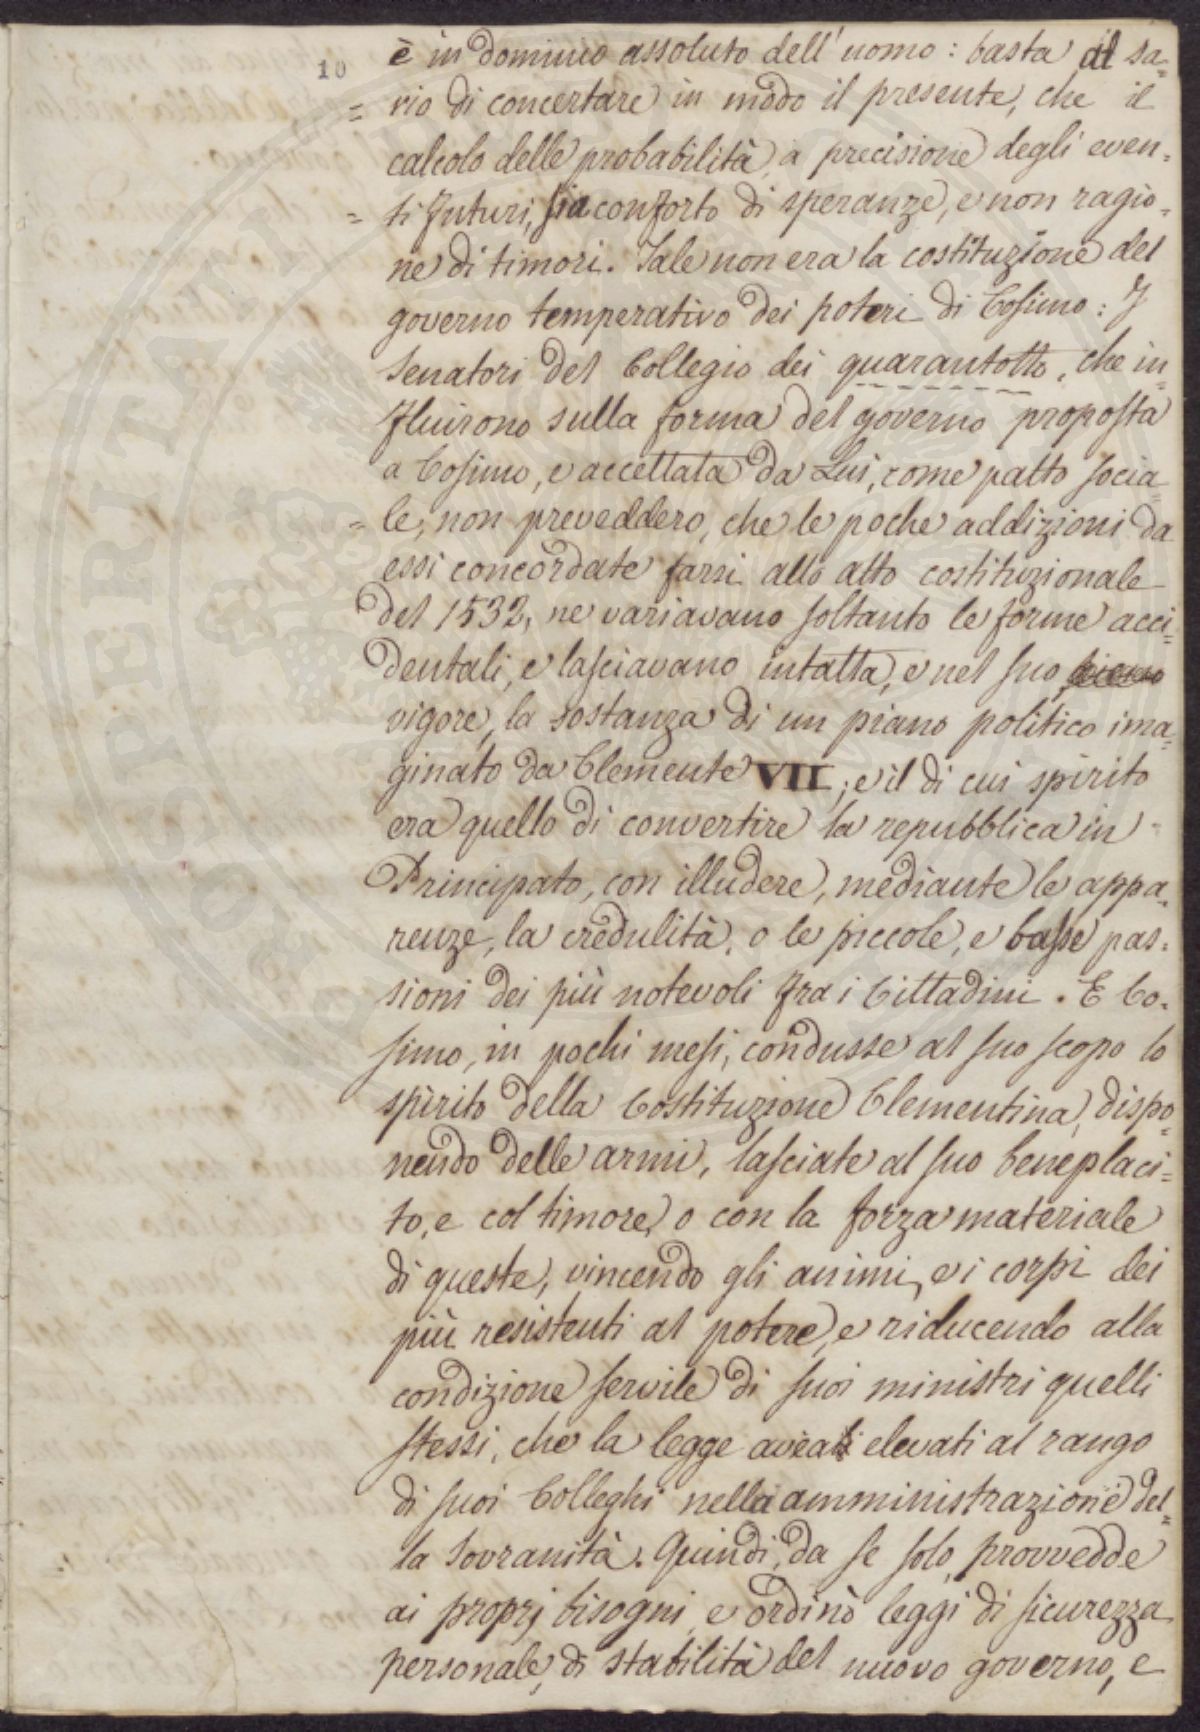 10
è in dominio assoluto dell'uomo: basta al sa=
= vio di concertare in modo il presente, che il
calcolo delle probabilità, a precisione degli even=
= ti futuri, sia conforto di speranze, e non ragio=
ne di timori. Tale non era la costituzione del
governo temperativo dei poteri di Cosimo: I
Senatori del Collegio dei quarantotto, che in=
fluirono sulla forma del governo proposta
a Cosimo, e accettata da Lui, come patto socia=
= le, non preveddero, che le poche addizioni da
essi concordate farsi allo atto costituzionale
del 1532, ne variavano soltanto le forme acci=
dentali, e lasciavano intatta, e nel suo
vigore, la sostanza di un piano politico ima=
ginato da Clemente VII; e il di cui spirito
era quello di convertire la repubblica in
Principato, con illudere, mediante le appa=
renze, la credulità, o le piccole, e basse pas=
sioni dei più notevoli fra i Cittadini. E Co=
simo, in pochi mesi, condusse al suo scopo lo
spirito della Costituzione Clementina, dispo=
nendo delle armi, lasciate al suo beneplaci=
to, e col timore, o con la forza materiale
di queste, vincendo gli animi, e i corpi dei
più resistenti al potere, e riducendo alla
condizione servile di suoi ministri quelli
stessi, che la legge avea elevati al rango
di suoi Colleghi nella amministrazione del=
la Sovranità. Quindi, da se solo, provvedde
ai proprj bisogni, e ordinò leggi di sicurezza
personale, di stabilità del nuovo governo, e
PROSPERITATI